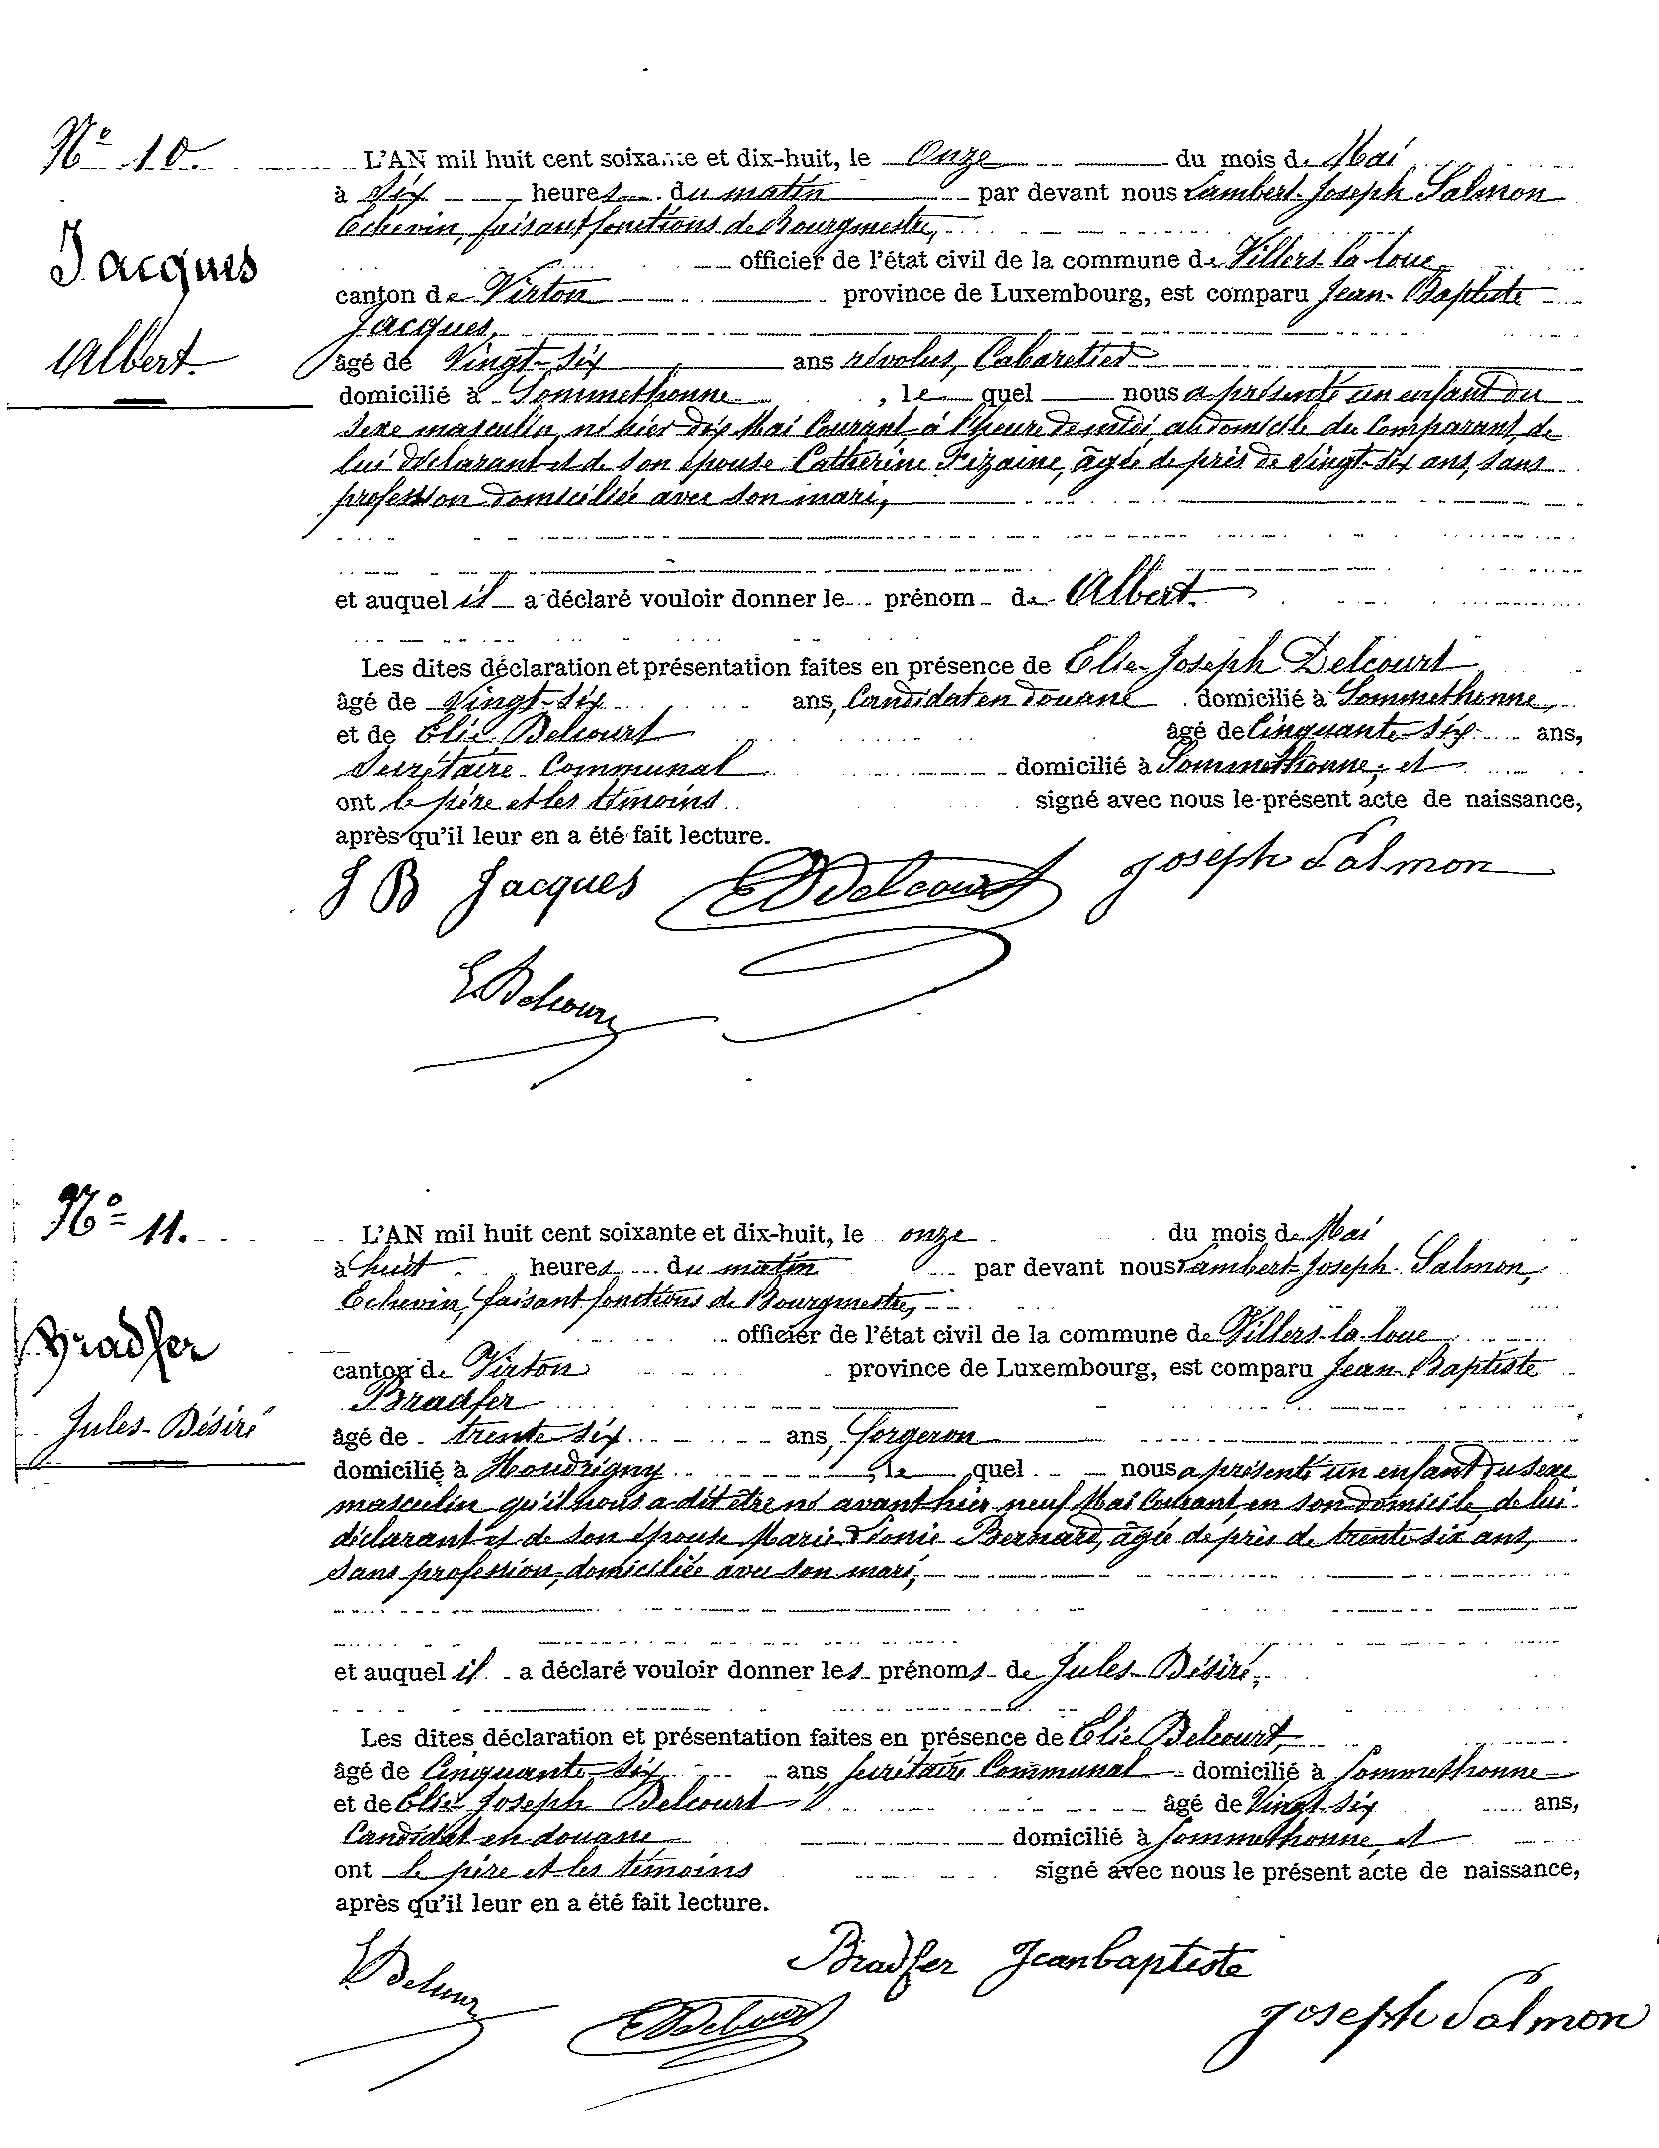 Nº 10.
Jacques
Albert.
L'AN mil huit cent soixante et dix-huit, le Onze du mois de Mai
à six heures du matin par devant nous Lambert-Joseph Salmon
Echevin, faisant fonctions de Bourgmestre,
officier de l'état civil de la commune de Villers-la-loue
canton de Virton province de Luxembourg, est comparu Jean-Baptiste
Jacques,
âgé de Vingt-six ans révolus, Cabaretier
domicilié à Sommethonne, le quel nous a présenté un enfant du
sexe masculin, né hier dix Mai Courant, à l'heure de midi, au domicile du Comparant, de
lui déclarant et de son épouse Catherine Fizaine, âgée de près de vingt-six ans, sans
profession domiciliée avec son mari,
et auquel il a déclaré vouloir donner le prénom de Albert.
Les dites déclaration et présentation faites en présence de Elie-Joseph Delcourt
âgé de vingt-six ans, Candidat en douane domicilié à Sommethonne,
et de Elie Delcourt âgé de Cinquante-six ans,
Secrétaire Communal domicilié à Sommethonne, et
ont le père et les témoins signé avec nous le présent acte de naissance,
après qu'il leur en a été fait lecture.
J B Jacques EJDelcourt Joseph Salmon
E Delcourt
Nº 11.
Bradfer
Jules-Désiré
L'AN mil huit cent soixante et dix-huit, le onze du mois de Mai
à huit heures du matin par devant nous Lambert-Joseph Salmon,
Echevin, faisant fonctions de Bourgmestre,
officier de l'état civil de la commune de Villers-la-loue
canton de Virton province de Luxembourg, est comparu Jean-Baptiste
Bradfer
âgé de trente six ans, forgeron
domicilié à Houdrigny, le quel nous a présenté un enfant du sexe
masculin qu'il nous a dit être né avant hier neuf Mai Courant, en son domicile, de lui
déclarant et de son épouse Marie Léonie Bernard, âgée de près de trente-six ans,
sans profession, domiciliée avec son mari,
et auquel il a déclaré vouloir donner les prénoms de Jules-Désiré,
Les dites déclaration et présentation faites en présence de Elie Delcourt,
âgé de Cinquante-six ans, Secrétaire Communal domicilié à Sommethonne
et de Elie Joseph Delcourt âgé de Vingt-six ans,
Candidat en douane domicilié à Sommethonne, et
ont le père et les témoins signé avec nous le présent acte de naissance,
après qu'il leur en a été fait lecture.
E Delcourt Bradfer Jeanbaptiste
EJDelcourt Joseph Salmon